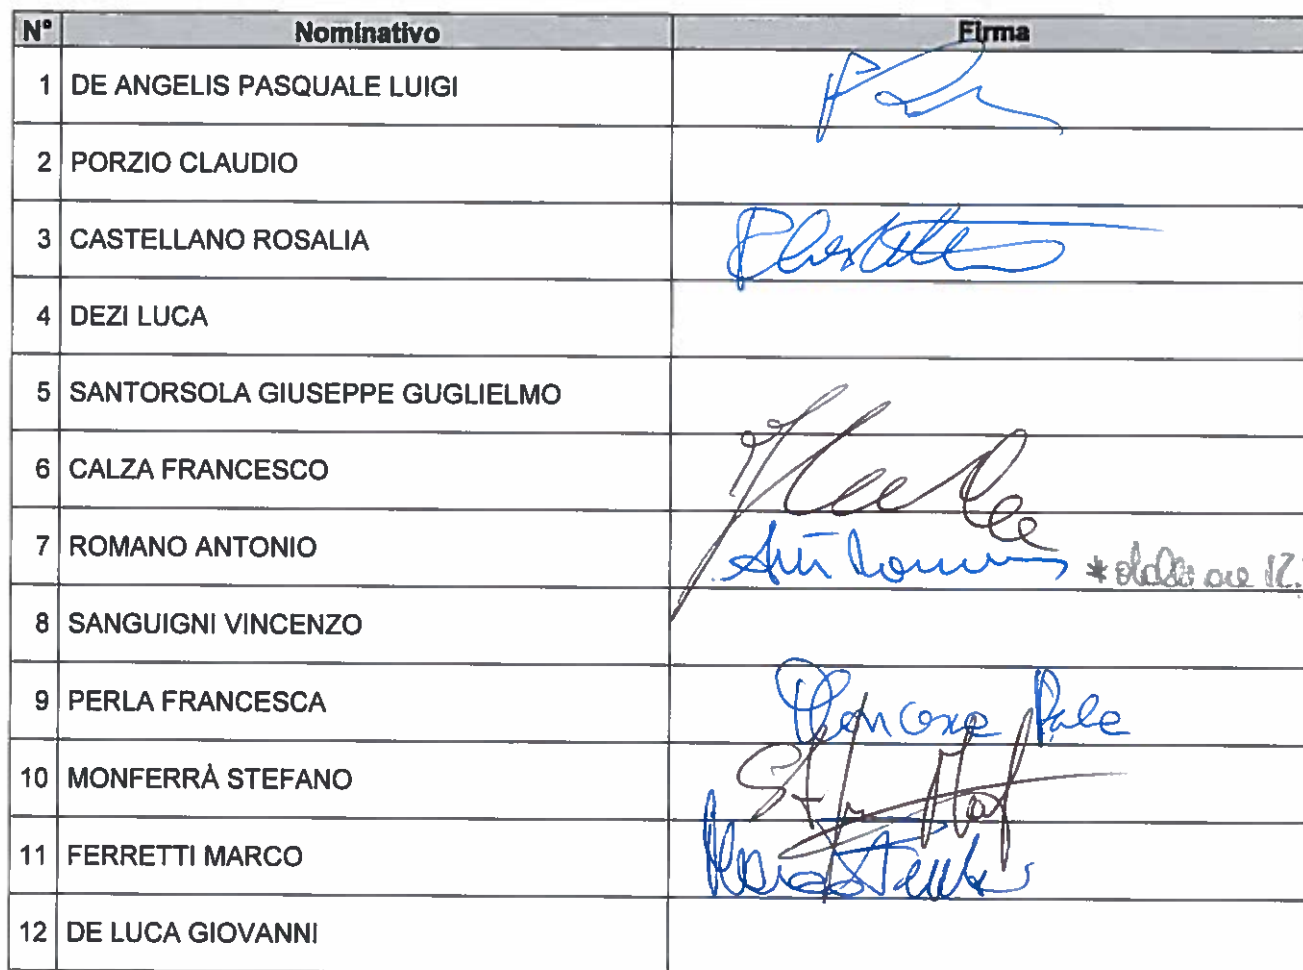 N° Nominativo Firma
1 DE ANGELIS PASQUALE LUIGI
2 PORZIO CLAUDIO
3 CASTELLANO ROSALIA
4 DEZI LUCA
5 SANTORSOLA GIUSEPPE GUGLIELMO
6 CALZA FRANCESCO
7 ROMANO ANTONIO * dalle ore 12.
8 SANGUIGNI VINCENZO
9 PERLA FRANCESCA Francesca Perla
10 MONFERRÀ STEFANO
11 FERRETTI MARCO Marco Ferretti
12 DE LUCA GIOVANNI